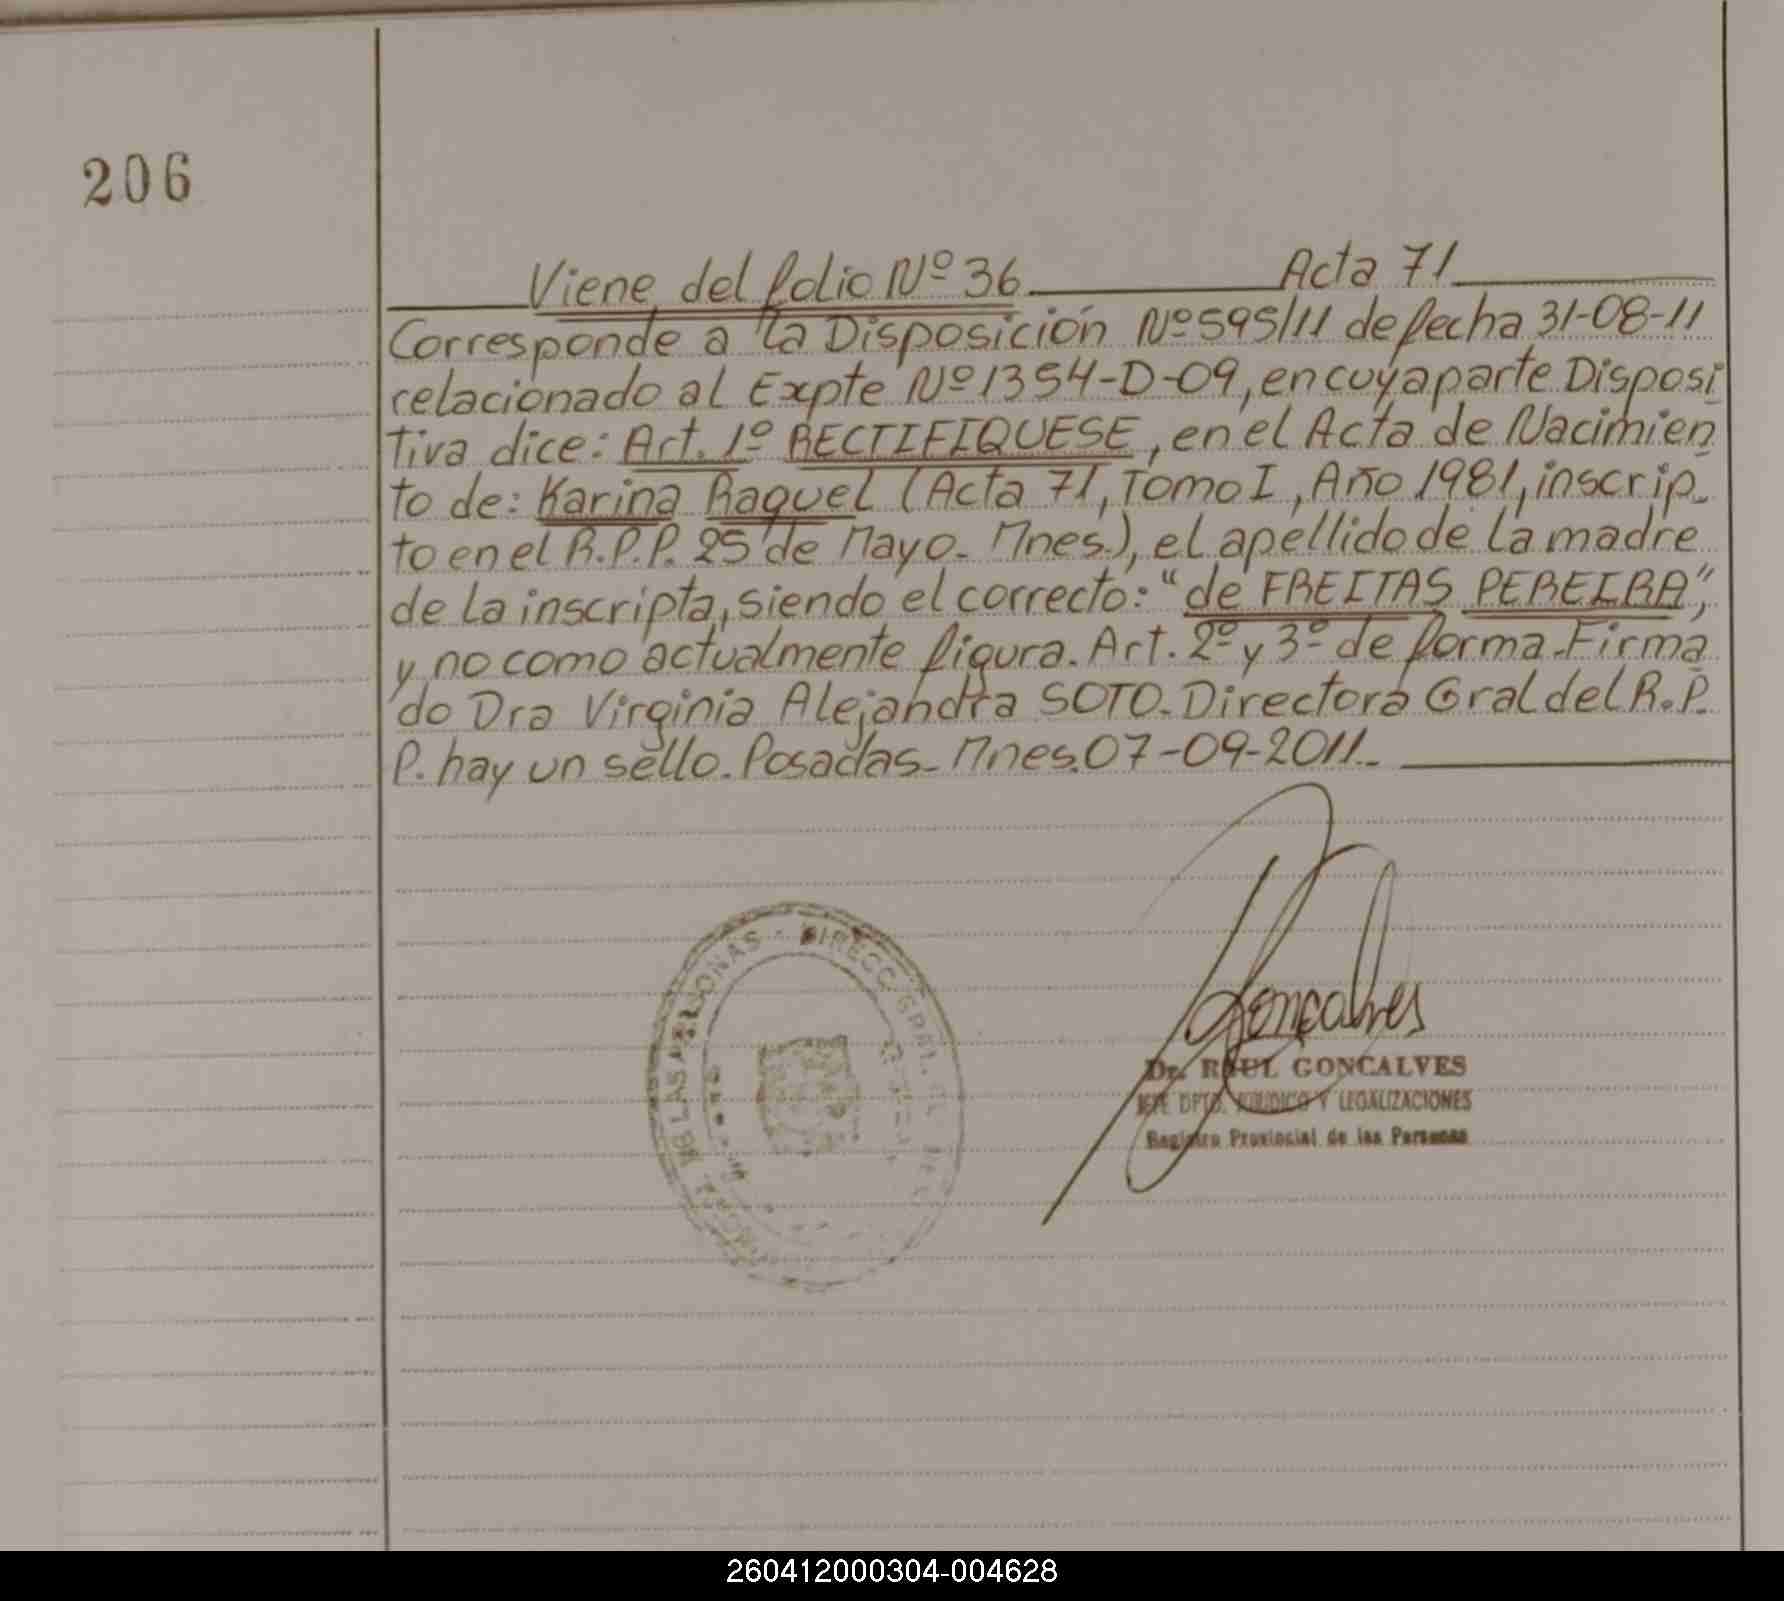 206
Viene del folio Nº 36 Acta 71
Corresponde a la Disposición Nº 595/11 de fecha 31-08-11
relacionado al Expte Nº 1354-D-09, en cuya parte Disposi
tiva dice: Art. 1º RECTIFIQUESE, en el Acta de Nacimien
to de: Karina Raquel (Acta 71, Tomo I, Año 1981, inscrip-
to en el R.P.P. 25 de Mayo - Mnes.), el apellido de la madre
de la inscripta, siendo el correcto: "de FREITAS PEREIRA",
y no como actualmente figura. Art. 2º y 3º de forma. Firma
do Dra Virginia Alejandra SOTO. Directora Gral del R.P.
P. hay un sello. Posadas - Mnes. 07-09-2011.-
DIRECC. GRAL. DE LAS PERSONAS
Goncalves
Dr. RAUL GONCALVES
JEFE DPTO. JURIDICO Y LEGALIZACIONES
Registro Provincial de las Personas
260412000304-004628